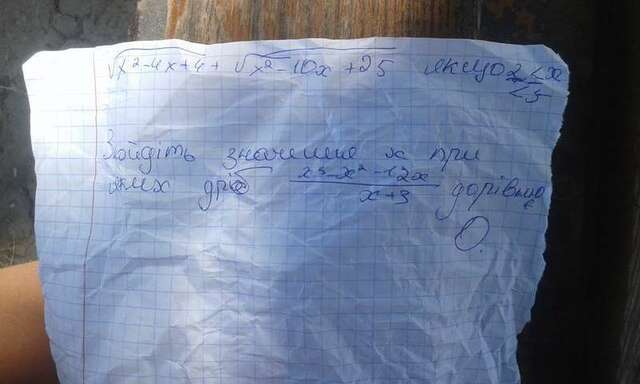 √x²-4x+4 + √x²-10x+25 якщо 2<x
<5
Зайдіть значиння x при
яких дріб x³-x²-12x / x+3 дорівнює
0.